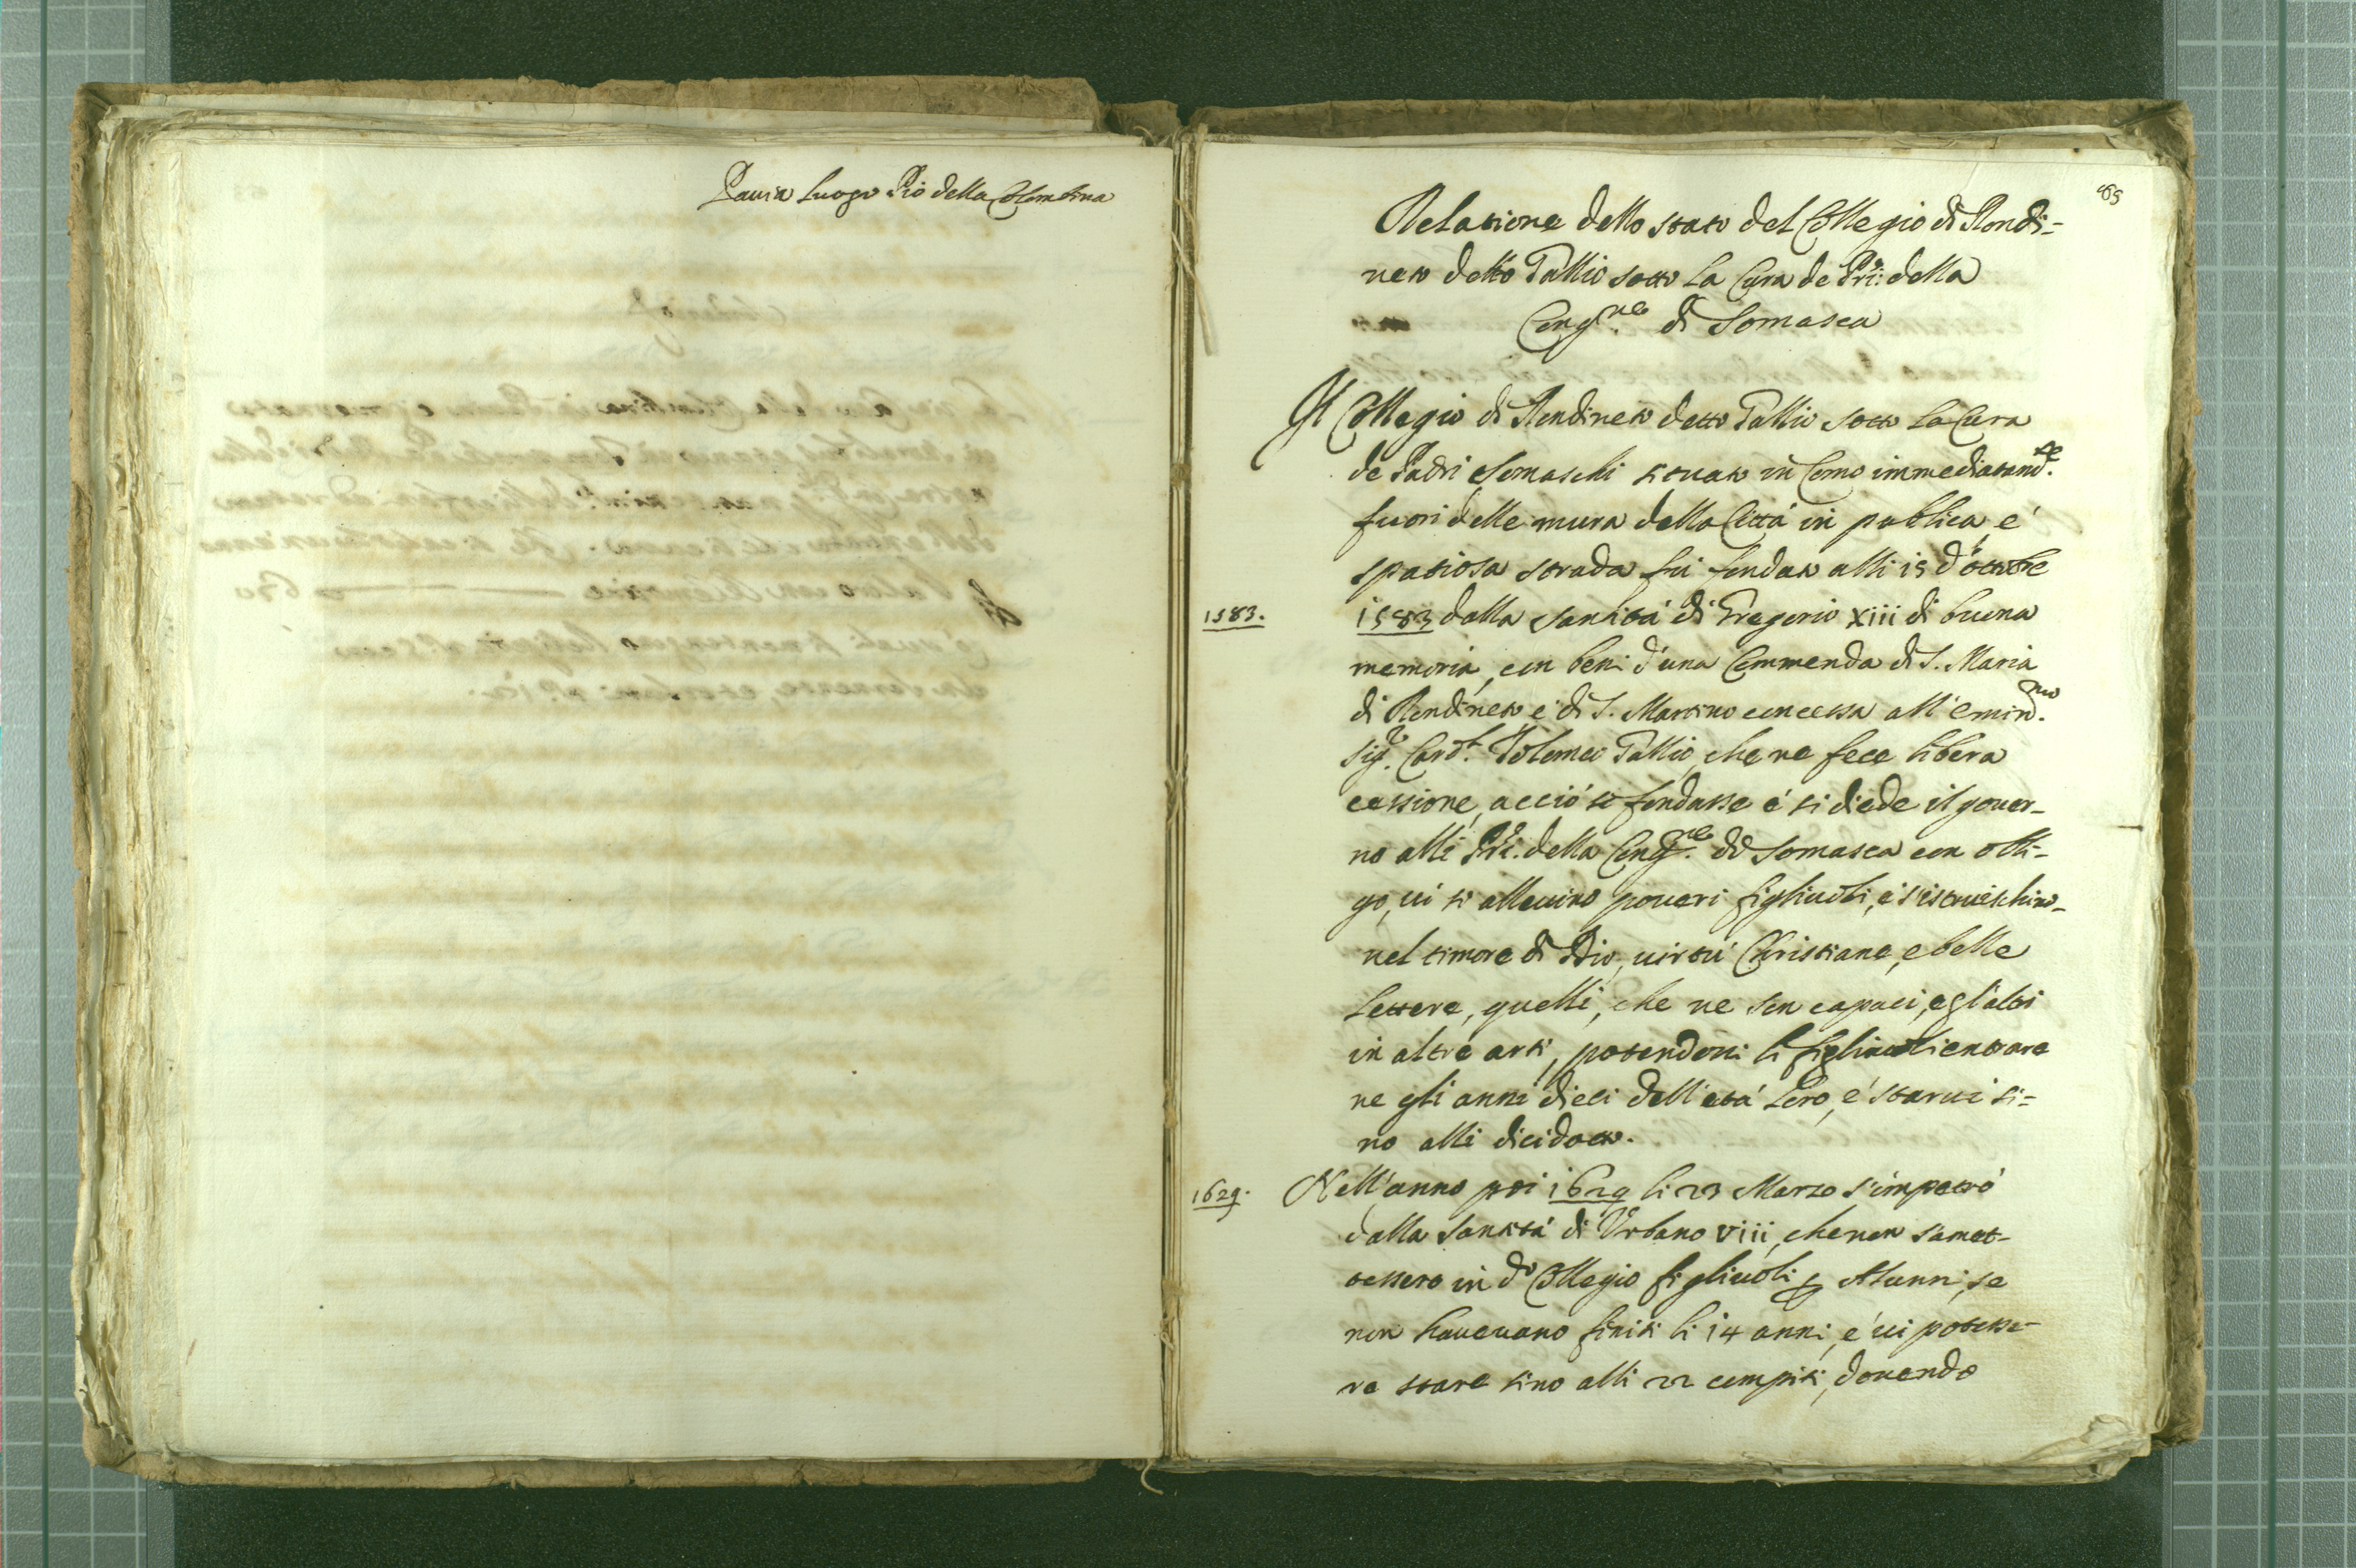 Pavia Luogo Pio della Colombina
69
Relatione dello stato del Collegio di Rondi-
neto detto Gallio sotto la Cura de Pri: della
Cong.ne di Somasca
Il Collegio di Rondineto detto Gallio sotto la Cura
de Padri Somaschi situato in Como immediatam.te
fuori delle mura della Città in publica, e
spatiosa strada fù fondato alli 15 d'ottobre
1583. 1583 dalla santità di Gregorio xiii di buona
memoria, con beni d'una Commenda di S. Maria
di Rondineto e di S. Martino concessa all'emin.mo
Sig.r Card.l Tolomeo Gallio, che ne fece libera
cessione, acciò si fondasse e si diede il gouer-
no alli Pri. della Cong.ne di Somasca con obli-
go, ui si alleuino poueri figliuoli, e s'istruischino
nel timore di Dio, uirtù Christiane, e belle
lettere, quelli, che ne son capaci, e gl'altri
in altre arti, potendoui li figliuoli entrare
ne gli anni dieci dell'età loro, e starui si-
no alli dicidotto.
1629. Nell'anno poi 1629 li 23 Marzo s'impetrò
dalla santità di Vrbano viii, che non s'amet-
tessero in d.o Collegio figliuoli p Alunni, se
non haueuano finiti li 14 anni, e ui potesse-
ro stare sino alli 22 compiti, douendo